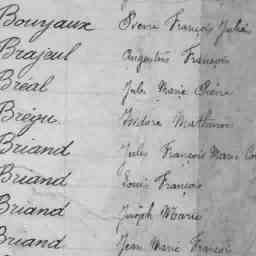 Bouyaux Pierre François Julien
Brajeul Augustin François
Bréal Jules Marie Pierre
Brégu Isidore Mathurin
Briand Jules François Marie
Briand Louis François
Briand Joseph Marie
Briand Jean Marie François